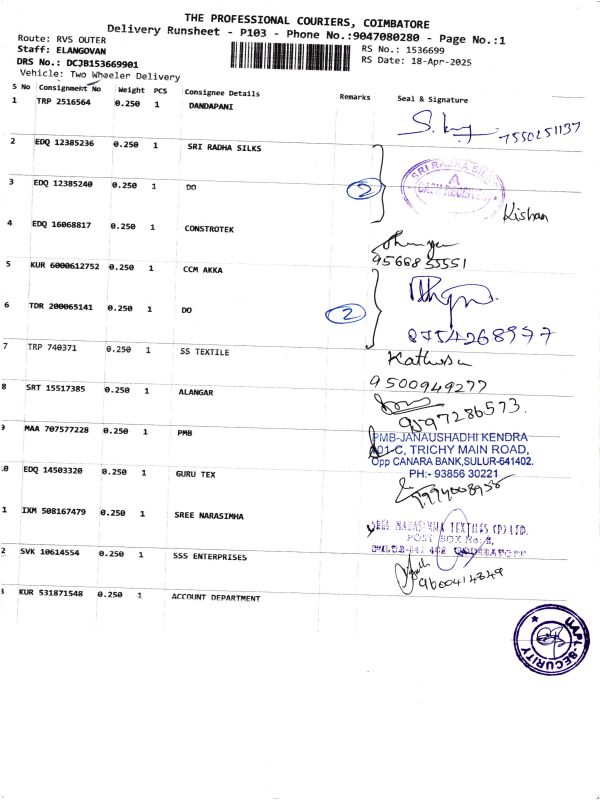 THE PROFESSIONAL COURIERS, COIMBATORE
Delivery Runsheet - P103 - Phone No.:9047080280 - Page No.:1
Route: RVS OUTER
RS No.: 1536699
Staff: ELANGOVAN
RS Date: 18-Apr-2025
DRS No.: DCJB153669901
Vehicle: Two Wheeler Delivery
S No Consignment No Weight PCS Consignee Details Remarks Seal & Signature
1 TRP 2516564 0.250 1 DANDAPANI
7550251137
2 EDQ 12385236 0.250 1 SRI RADHA SILKS
SRI RADHA
A
CASH RECEIVED
3 EDQ 12385240 0.250 1 DO 2
Kishan
4 EDQ 16068817 0.250 1 CONSTROTEK
9566835551
5 KUR 6000612752 0.250 1 CCM AKKA
6 TDR 200065141 0.250 1 DO 2
8754268977
7 TRP 740371 0.250 1 SS TEXTILE
9500949277
8 SRT 15517385 0.250 1 ALANGAR
9597286573.
9 MAA 707577228 0.250 1 PMB
PMB-JANAUSHADHI KENDRA
101-C, TRICHY MAIN ROAD,
Opp CANARA BANK,SULUR-641402.
PH:- 93856 30221
0 EDQ 14503320 0.250 1 GURU TEX
9994008958
1 IXM 508167479 0.250 1 SREE NARASIMHA
SREE NARASIMHA TEXTILES (P) LTD.
POST BOX No: 2,
SULUR-641 402 COIMBATORE
2 SVK 10614554 0.250 1 SSS ENTERPRISES
9600414849
3 KUR 531871548 0.250 1 ACCOUNT DEPARTMENT
SECURITY